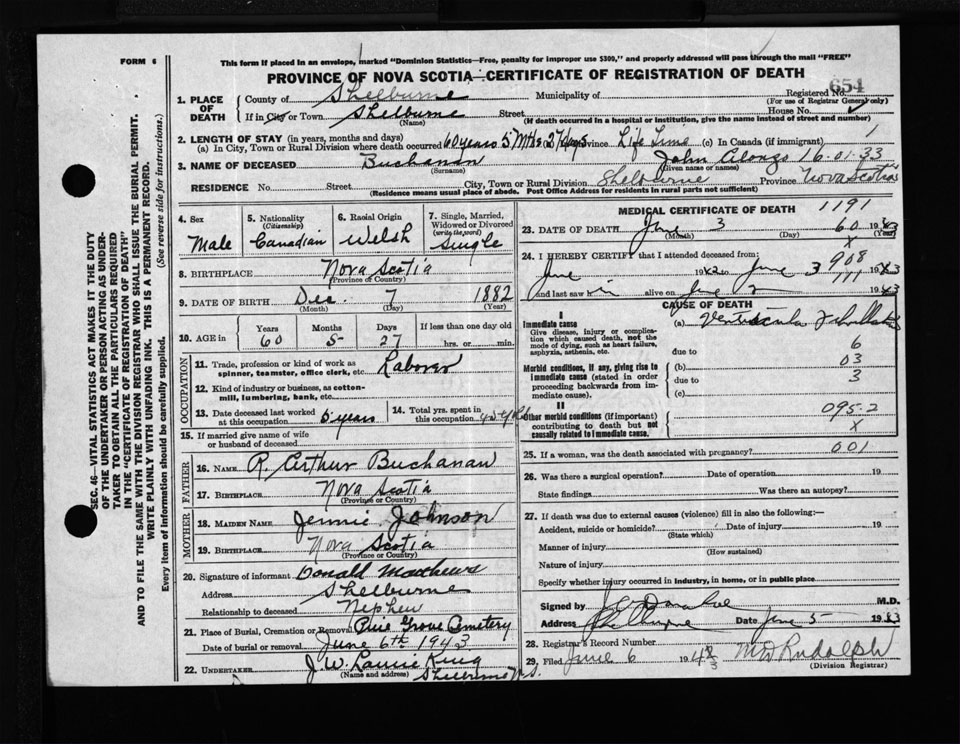 FORM 6
This form if placed in an envelope, marked "Dominion Statistics—Free, penalty for improper use $300," and properly addressed will pass through the mail "FREE"
PROVINCE OF NOVA SCOTIA—CERTIFICATE OF REGISTRATION OF DEATH
654
1. PLACE OF DEATH
County of Shelburne Municipality of Registered No.
(For use of Registrar General only)
If in City or Town Shelburne Street House No.
(Name) (If death occurred in a hospital or institution, give the name instead of street and number)
2. LENGTH OF STAY (in years, months and days)
(a) In City, Town or Rural Division where death occurred 60 years 5 Mths 27 days Province Life Time (c) In Canada (if immigrant)
3. NAME OF DECEASED Buchanan John Alonzo 16.01.33
(Surname) (Given name or names)
RESIDENCE No. Street City, Town or Rural Division Shelburne Province Nova Scotia
(Residence means usual place of abode. Post Office Address for residents in rural parts not sufficient)
4. Sex
Male
5. Nationality (Citizenship)
Canadian
6. Racial Origin
Welsh
7. Single, Married, Widowed or Divorced (write the word)
Single
8. BIRTHPLACE Nova Scotia
(Province or Country)
9. DATE OF BIRTH Dec. 7 1882
(Month) (Day) (Year)
10. AGE Years Months Days If less than one day old
60 5 27 hrs. or min.
OCCUPATION
11. Trade, profession or kind of work as spinner, teamster, office clerk, etc. Laborer
12. Kind of industry or business, as cotton-mill, lumbering, bank, etc.
13. Date deceased last worked at this occupation 5 years
14. Total yrs. spent in this occupation
15. If married give name of wife or husband of deceased
FATHER
16. NAME R. Arthur Buchanan
17. BIRTHPLACE Nova Scotia
(Province or Country)
MOTHER
18. MAIDEN NAME Jennie Johnson
19. BIRTHPLACE Nova Scotia
(Province or Country)
20. Signature of informant Donald Matthews
Address Shelburne
Relationship to deceased Nephew
21. Place of Burial, Cremation or Removal Pine Grove Cemetery
Date of burial or removal June 6th 1943
22. UNDERTAKER J.W. Laurie King
(Name and address) Shelburne N.S.
MEDICAL CERTIFICATE OF DEATH 1191
23. DATE OF DEATH June 3 60 1943
(Month) (Day) (Year)
X
24. I HEREBY CERTIFY that I attended deceased from: 908
June 1943 to June 3 1943
111
and last saw him alive on June 2 1943
CAUSE OF DEATH
I
Immediate cause
Give disease, injury or complication which caused death, not the mode of dying, such as heart failure, asphyxia, asthenia, etc.
(a)
due to 6
Morbid conditions, if any, giving rise to immediate cause (stated in order proceeding backwards from immediate cause).
(b) 03
due to 3
(c)
II
Other morbid conditions (if important) contributing to death but not causally related to immediate cause.
095.2
X
25. If a woman, was the death associated with pregnancy? 001
26. Was there a surgical operation? Date of operation 19
State findings Was there an autopsy?
27. If death was due to external causes (violence) fill in also the following:—
Accident, suicide or homicide? Date of injury 19
(State which)
Manner of injury
(How sustained)
Nature of injury
Specify whether injury occurred in industry, in home, or in public place
Signed by M.D.
Address Shelburne Date June 5 1943
28. Registrar's Record Number
29. Filed June 6 1943 M D Rudolph
(Division Registrar)
SEC. 46—VITAL STATISTICS ACT MAKES IT THE DUTY
OF THE UNDERTAKER OR PERSON ACTING AS UNDER-
TAKER TO OBTAIN ALL THE PARTICULARS REQUIRED
IN THE "CERTIFICATE OF REGISTRATION OF DEATH"
AND TO FILE THE SAME WITH THE DIVISION REGISTRAR WHO SHALL ISSUE THE BURIAL PERMIT.
WRITE PLAINLY WITH UNFADING INK. THIS IS A PERMANENT RECORD.
Every item of information should be carefully supplied. (See reverse side for instructions.)